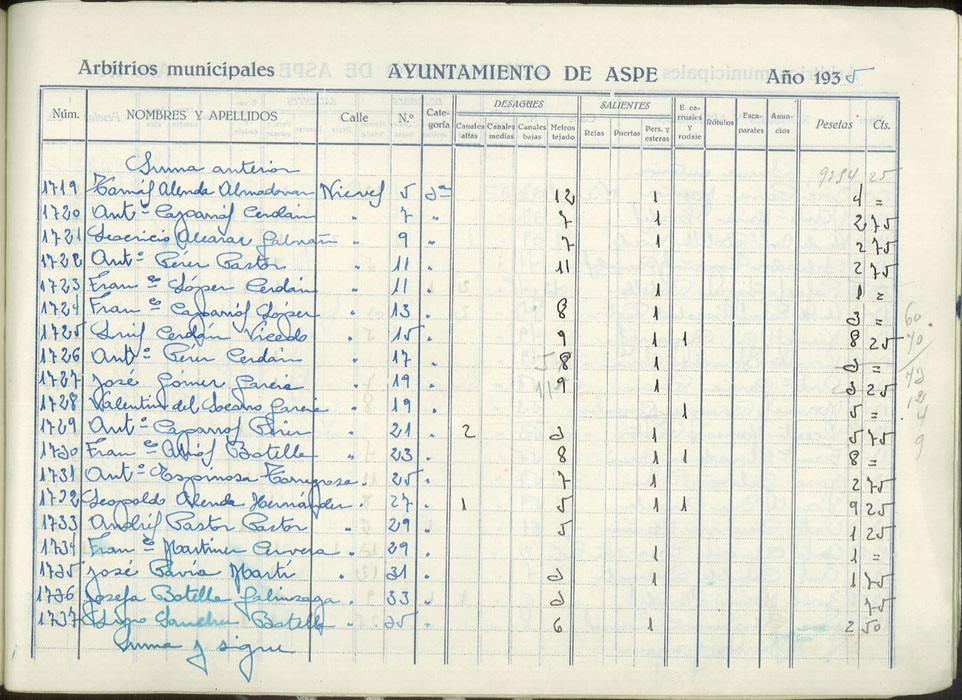 Arbitrios municipales AYUNTAMIENTO DE ASPE Año 1935
Núm. NOMBRES Y APELLIDOS Calle N.º Categoría DESAGUES Canales altas Canales medias Canales bajas Metros tejado SALIENTES Rejas Puertas Pers. y esteras E. carruajes y rodaje Rótulos Escaparates Anuncios Pesetas Cts.
Suma anterior 9254 25
1719 Tomás Alenda Almodovar Nieves 5 3ª 12 1 4 =
1720 Antº Caparrós Cerdán " 7 " 7 1 2 75
1721 Alcaraz " 9 " 7 1 2 75
1722 Antº Pérez Pastor " 11 . 11 2 75
1723 Franco López Cerdán " 11 . 1 1 =
1724 Franco Caparrós López . 13 . 8 1 3 =
1725 Luis Cerdán Vicedo . 15 . 9 1 1 8 25
1726 Antº Pérez Cerdán " 17 " 8 1 3 =
1727 José Gómez García " 19 . 9 1 3 25
1728 Valentín del Socorro García . 19 . 1 5 =
1729 Antº Caparrós Pérez . 21 . 2 3 1 5 75
1730 Franco Botella " 23 . 8 1 1 8 =
1731 Antº Espinosa Torregrosa . 25 . 7 1 2 75
1732 Leopoldo Alenda Hernández . 27 . 1 5 1 1 9 25
1733 Andrés Pastor Pastor " 29 " 5 1 25
1734 Franco Martínez Cervera . 29 . 1 1 =
1735 José Pavía Martí . 31 . 3 1 1 75
1736 Josefa Botella Galinsoga . 33 . 3 75
1737 Sánchez Botella " 35 . 6 1 2 50
Suma y sigue